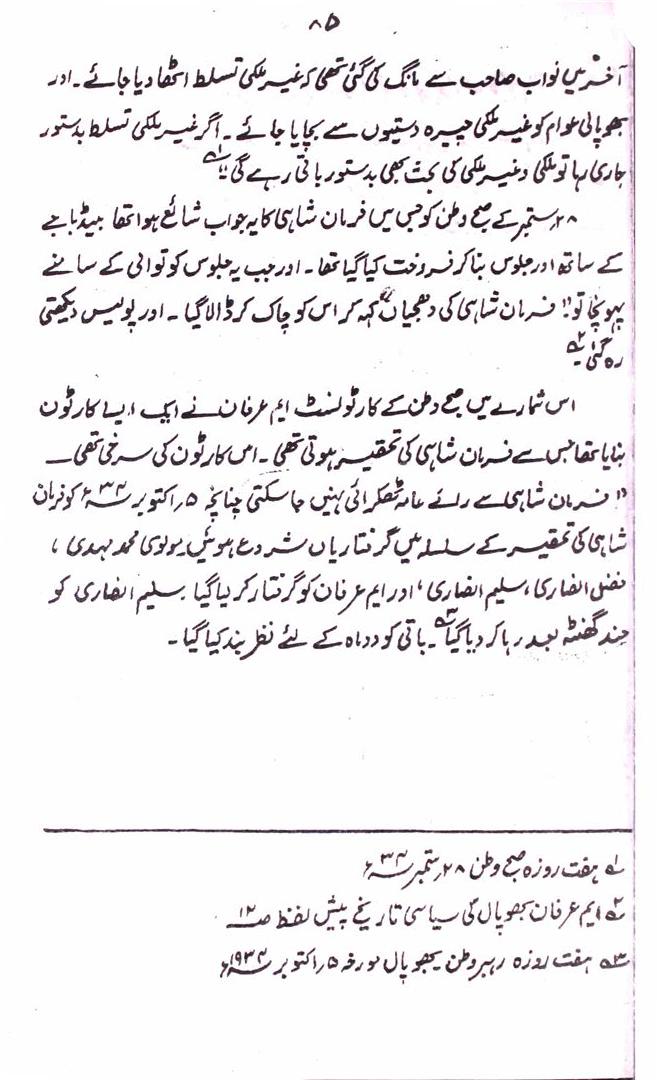 ۸۵
آخر میں نواب صاحب سے مانگ کی گئی تھی کہ غیر ملکی تسلط اٹھا دیا جائے۔ اور
بھوپالی عوام کو غیر ملکی چیرہ دستیوں سے بچایا جائے۔ اگر غیر ملکی تسلط بدستور
جاری رہا تو ملکی و غیر ملکی کی بحث بھی بدستور باقی رہے گی"؎۱
۲۸؍ستمبر کے صبح وطن کو جس میں فرمان شاہی کا یہ جواب شائع ہوا تھا بینڈ باجے
کے ساتھ اور جلوس بنا کر فروخت کیا گیا تھا۔ اور جب یہ جلوس کوتوالی کے سامنے
پہونچا تو "فرمان شاہی کی دھجیاں" کہہ کر اس کو چاک کر ڈالا گیا۔ اور پولیس دیکھتی
رہ گئی؎۲
اس شمارے میں صبح وطن کے کارٹونسٹ ایم عرفان نے ایک ایسا کارٹون
بنایا تھا جس سے فرمان شاہی کی تحقیر ہوتی تھی۔ اس کارٹون کی سرخی تھی۔
"فرمان شاہی سے رائے عامہ ٹھکرائی نہیں جا سکتی چنانچہ ۵؍اکتوبر ۳۴ء کو فرمان
شاہی کی تحقیر کے سلسلہ میں گرفتاریاں شروع ہوئیں مولوی محمد مہدی،
فضل انصاری، سلیم انصاری، اور ایم عرفان کو گرفتار کر لیا گیا۔ سلیم انصاری کو
چند گھنٹہ بعد رہا کر دیا گیا؎۳۔ باقی کو دو ماہ کے لئے نظر بند کیا گیا۔
؎۱ ہفت روزہ صبح وطن ۲۸؍ستمبر ۳۴ء
؎۲ ایم عرفان بھوپال کی سیاسی تاریخ پیش لفظ صـ ۱۲
؎۳ ہفت روزہ رہبر وطن بھوپال مورخہ ۵؍اکتوبر ۱۹۳۴ء